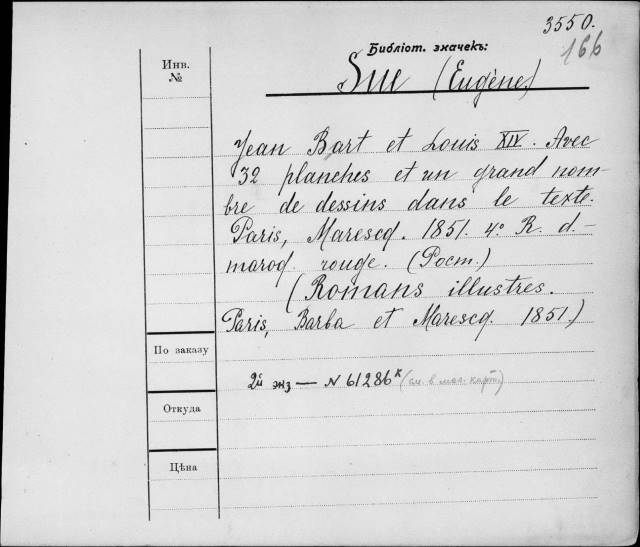 3550.
166
Библіот. значекъ:
Инв.
№
Sue (Eugène)
Jean Bart et Louis XIV. Avec
32 planches et un grand nom-
bre de dessins dans le texte.
Paris, Marescq. 1851. 4º R. d.-
maroq. rouge. (Рост.)
(Romans illustres.
Paris, Barba et Marescq. 1851.)
По заказу
2й экз — N 61286к (см. в мал. карт.)
Откуда
Цѣна